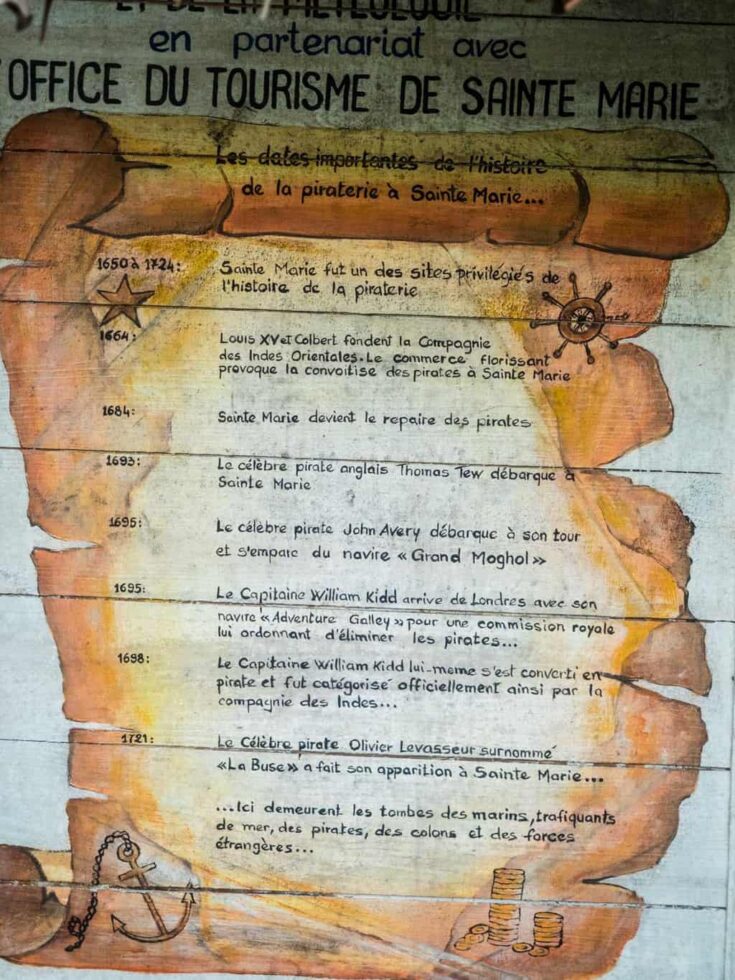 ET DE LA METEOLOGIE
en partenariat avec
OFFICE DU TOURISME DE SAINTE MARIE
Les dates importantes de l'histoire
de la piraterie à Sainte Marie...
1650 à 1724: Sainte Marie fut un des sites privilégiés de
l'histoire de la piraterie
1664: Louis XV et Colbert fondent la Compagnie
des Indes Orientales. Le commerce florissant
provoque la convoitise des pirates à Sainte Marie
1684: Sainte Marie devient le repaire des pirates
1693: Le célèbre pirate anglais Thomas Tew débarque à
Sainte Marie
1695: Le célèbre pirate John Avery débarque à son tour
et s'empare du navire « Grand Moghol »
1695: Le Capitaine William Kidd arrive de Londres avec son
navire « Adventure Galley » pour une commission royale
lui ordonnant d'éliminer les pirates...
1698: Le Capitaine William Kidd lui-meme s'est converti en
pirate et fut catégorisé officiellement ainsi par la
compagnie des Indes...
1721: Le Célèbre pirate Olivier Levasseur surnommé
« La Buse » a fait son apparition à Sainte Marie...
...Ici demeurent les tombes des marins, trafiquants
de mer, des pirates, des colons et des forces
étrangères...